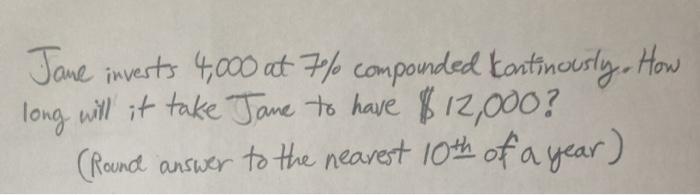 Jane invests 4,000 at 7% compounded kontinously. How
long will it take Jane to have $12,000?
(Round answer to the nearest 10th of a year)